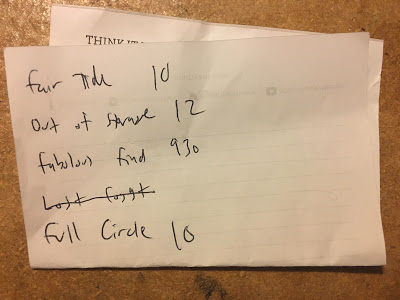 THINK IT
Fair Tide 10
Out of Storage 12
Fabulous find 930
Lost coast
Full Circle 10